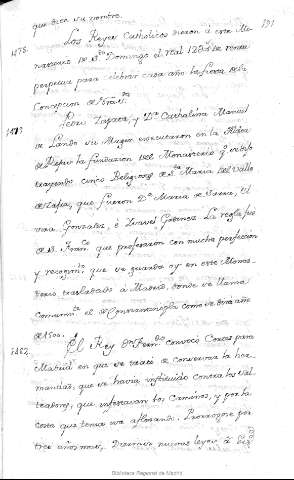 que dicen su nombre.
191
1478. Los Reyes Catholicos dieron a este Mo-
nasterio de Sto. Domingo el Real 120 mrs de renta
perpetua para celebrar cada año la fiesta de la
Concepcion de Nra. Sra.
Pedro Zapata, y Da. Cathalina Manuel
de Lando su Muger executaron en la Aldea
de Rejas la fundacion del Monasterio
trayendo cinco Religiosas de Sta. Maria del Valle
de Zafra, que fueron Da. Maria de
Gonzales, è Isavel Gomez. La regla fue
de S. Franco. que profesaron con mucha perfeccion
y recogimto. que se guarda oy en este Monas-
terio trasladado a Madrid, donde se llama
comunmte. el de Constantinopla como se dirà año
de 1500.
1482. El Rey Dn. Ferndo. convocò Cortes para
Madrid en que se tratò de conservar la her-
mandad, que se havia instituido contra los Sal-
teadores, que infestavan los Caminos, y por la
costa que tenia iva aflojando. Prorrogose por
tres años mas,
Biblioteca Regional de Madrid